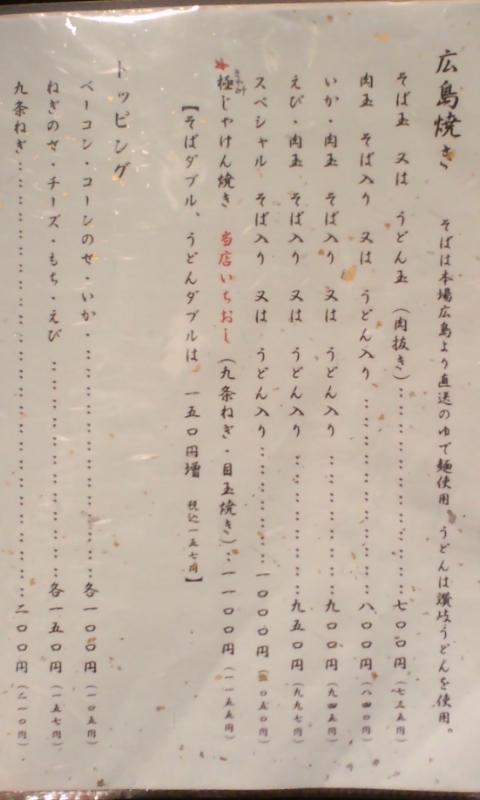 広島焼き そばは本場広島より直送のゆで麺使用。うどんは讃岐うどんを使用。
そば玉 又は うどん玉 (肉抜き)………………七〇〇円(七三五円)
肉玉 そば入り 又は うどん入り………………八〇〇円(八四〇円)
いか・肉玉 そば入り 又は うどん入り………………九〇〇円(九四五円)
えび・肉玉 そば入り 又は うどん入り………………九五〇円(九九七円)
スペシャル そば入り 又は うどん入り………………一〇〇〇円(一〇五〇円)
★極じゃけん焼き 当店いちおし (九条ねぎ・目玉焼き)…一一〇〇円(一一五五円)
【そばダブル、うどんダブルは 一五〇円増 税込一五七円】
トッピング
ベーコン・コーンのせ・いか………………各一〇〇円(一〇五円)
ねぎのせ・チーズ・もち・えび………………各一五〇円(一五七円)
九条ねぎ………………二〇〇円(二一〇円)